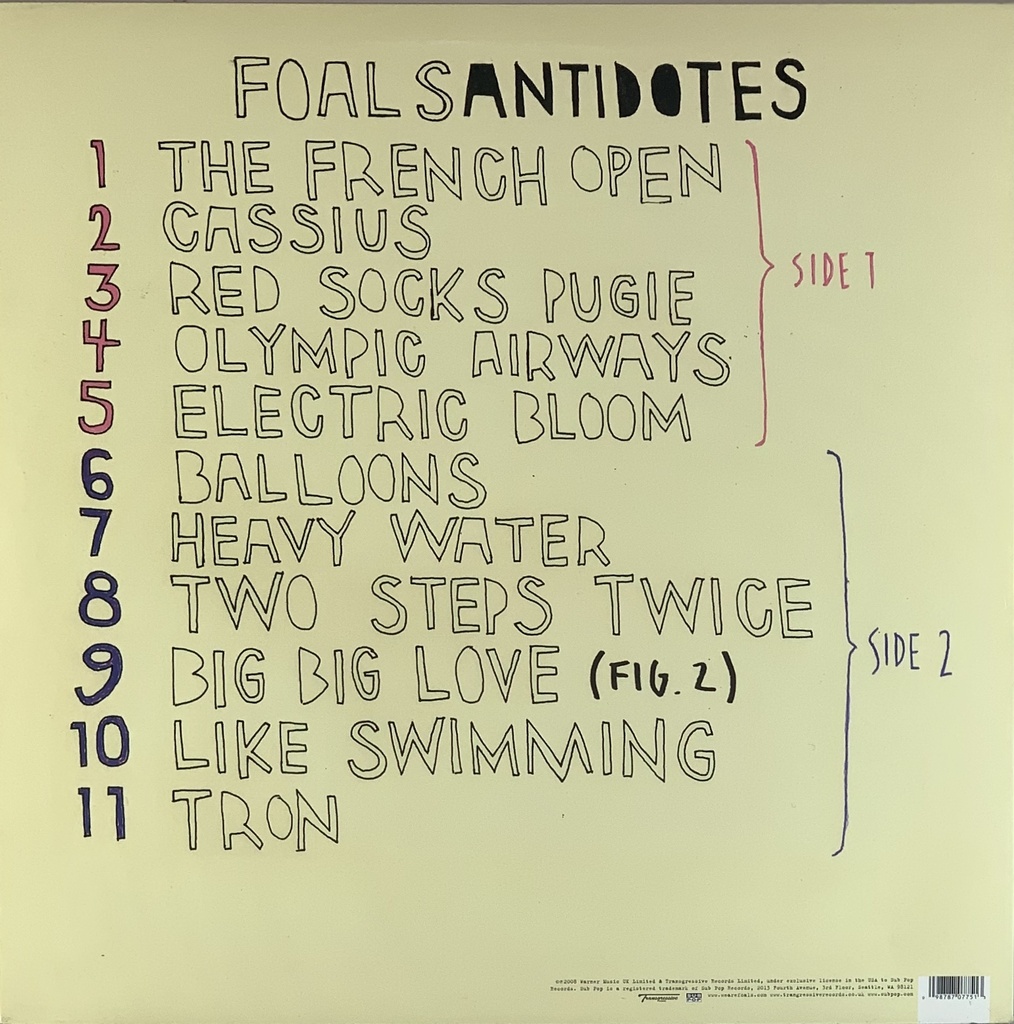 FOALS ANTIDOTES
1 THE FRENCH OPEN
2 CASSIUS
3 RED SOCKS PUGIE
SIDE 1
4 OLYMPIC AIRWAYS
5 ELECTRIC BLOOM
6 BALLOONS
7 HEAVY WATER
8 TWO STEPS TWICE
SIDE 2
9 BIG BIG LOVE (FIG. 2)
10 LIKE SWIMMING
11 TRON
©℗2008 Warner Music UK Limited & Transgressive Records Limited, under exclusive license in the USA to Sub Pop
Records. Sub Pop is a registered trademark of Sub Pop Records, 2013 Fourth Avenue, 3rd Floor, Seattle, WA 98121
Transgressive SUB POP www.wearefoals.com www.transgressiverecords.co.uk www.subpop.com